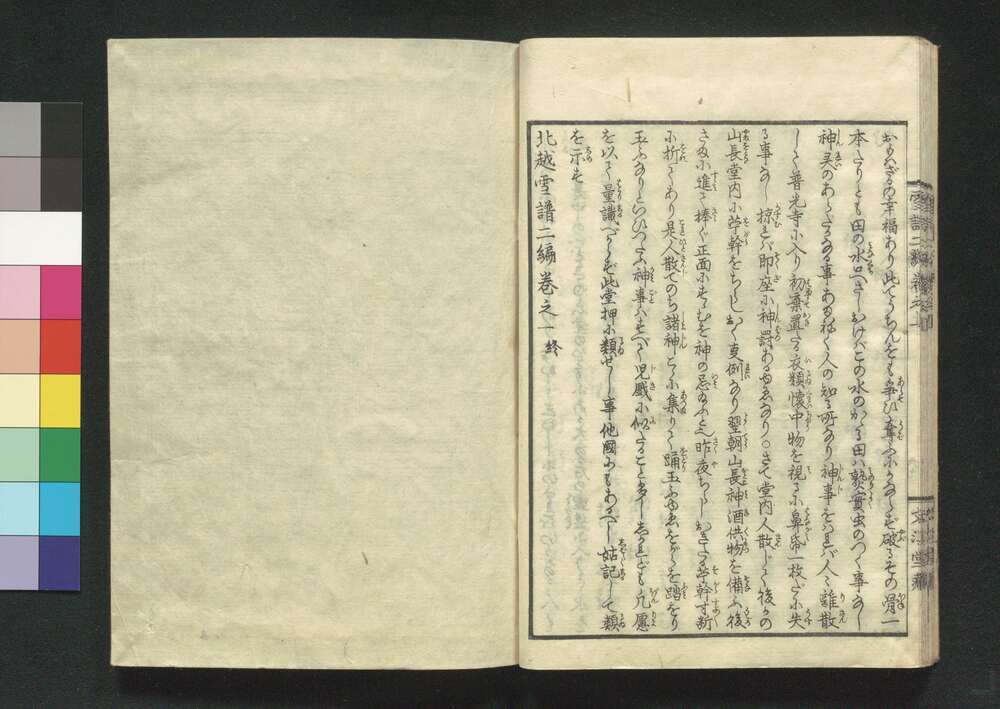 おもはざるの幸福あり此てうちんをも争ひ奪ふにかならず破るその骨一
本たりとも田の水口へさしおけバこの水のかゝる田ハ熟實虫のつく事なし
神灵のあらたなる事あまねく人の知る所なり神事をハれバ人々離散
して普光寺に入り初棄置たる衣類懐中物を視るに鼻帋一枚だに失
る事なし掠れバ即座に神罰あるゆゑなり○さて堂内人散じて後かの
山長堂内に苧幹をちらしおく㕝例なり翌朝山長神酒供物を備ふ後
さまに進て捧ぐ正面にすゝむを神の忌給ふと也昨夜ちらしおきたる苧幹寸断
に折てあり是人散じてのち諸神こゝに集りて踊玉ふゆゑをがらを踏をり
玉ふなりといひつたふ神事ハすべて児戯に似たること多ししかれども凡慮
を以て量識べからず此堂押に類せし事他國にもあるべし姑記して類
を示す
北越雪譜二編巻之一終
雪譜二編 巻之一
文溪堂藏